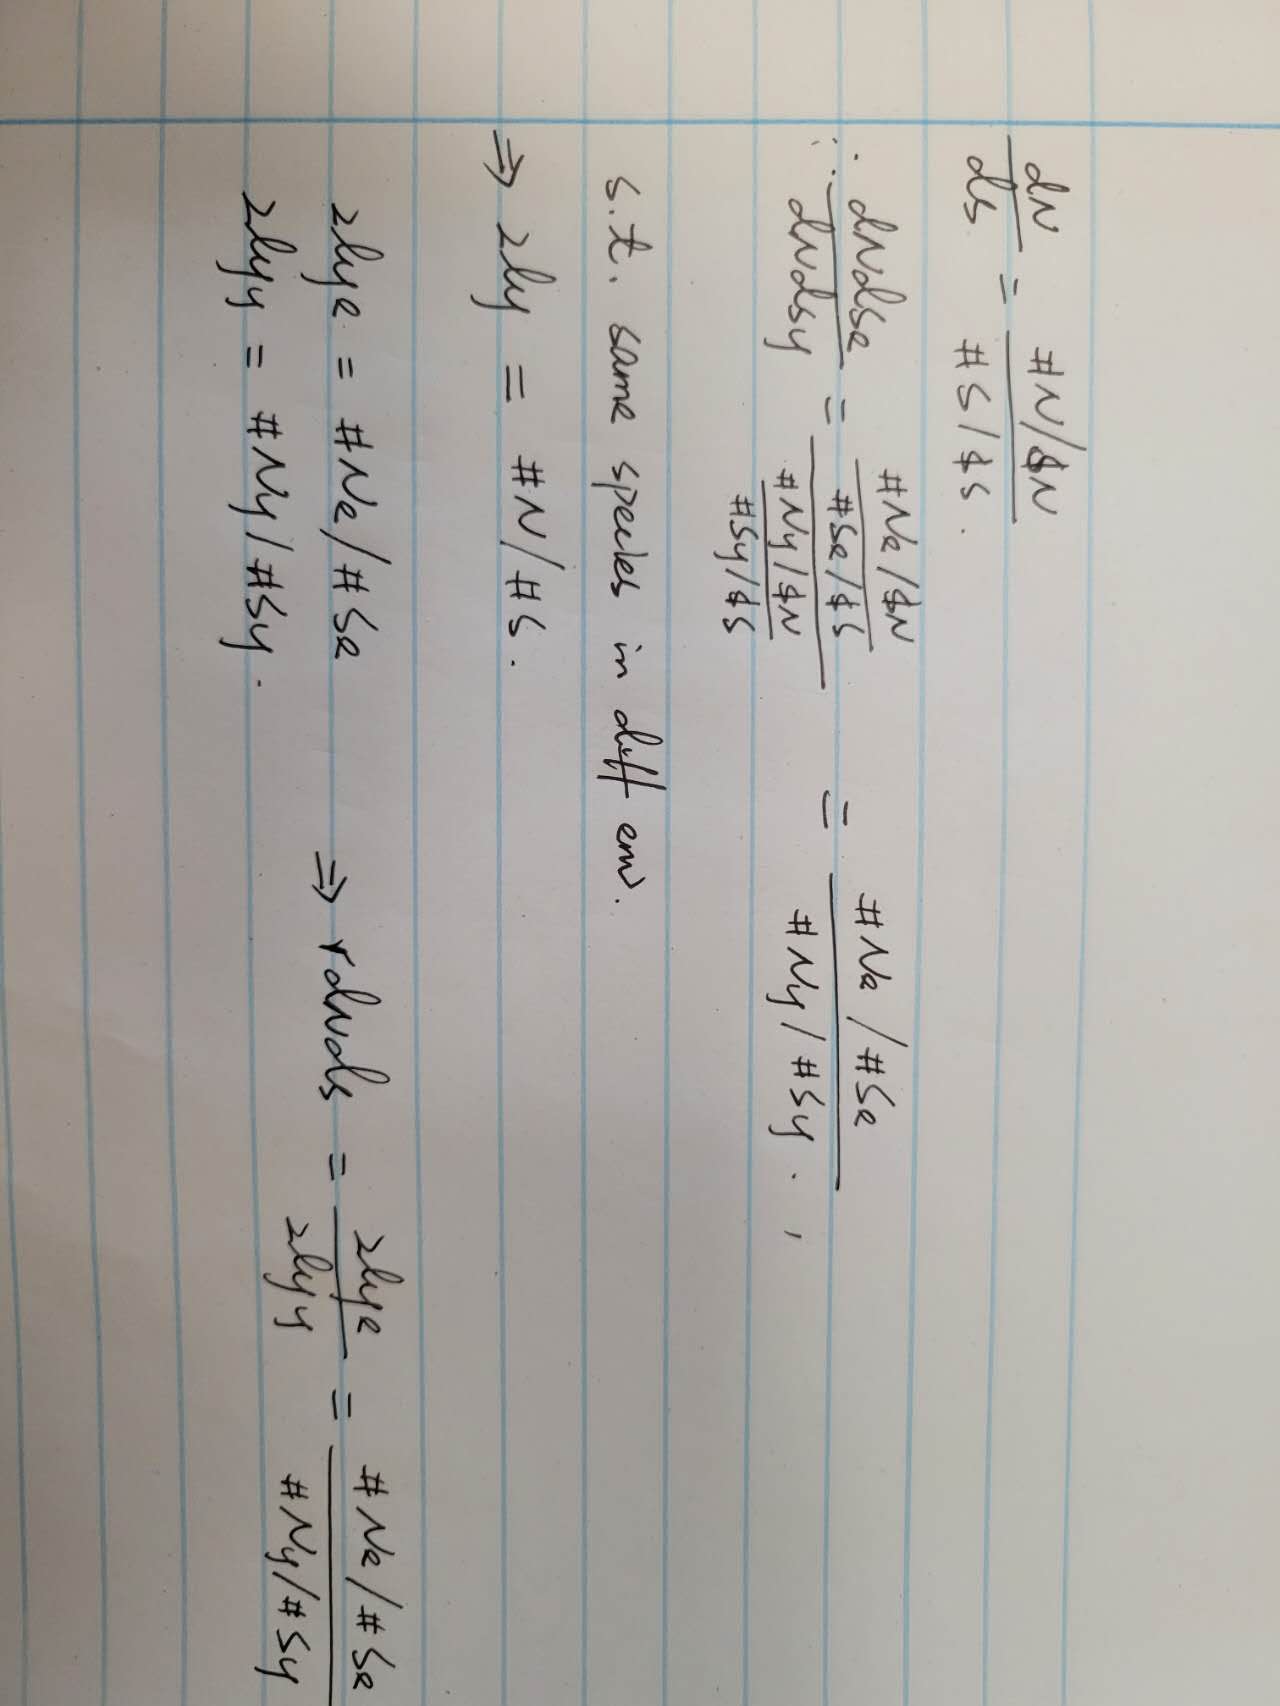 dN/dS = (#N/$N)/(#S/$S).
∵ dNdSe/dNdSy = ((#Ne/$N)/(#Se/$S))/((#Ny/$N)/(#Sy/$S)) = (#Ne/#Se)/(#Ny/#Sy).,
s.t. same species in diff env.
⇒ zly = #N/#S.
zlye = #Ne/#Se
zlyy = #Ny/#Sy. ⇒ rdNdS = zlye/zlyy = (#Ne/#Se)/(#Ny/#Sy)